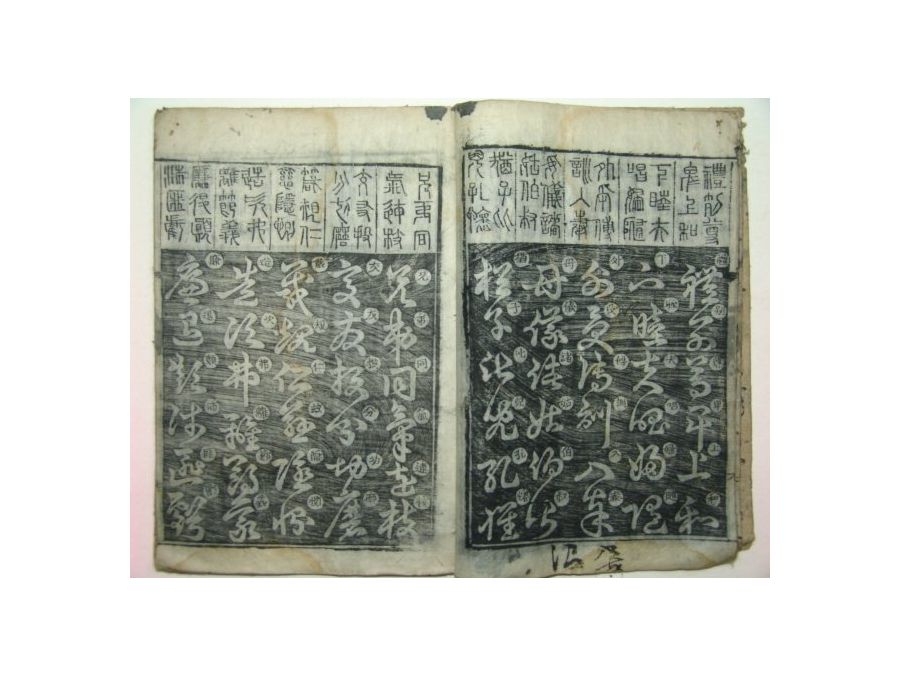 禮別尊
卑上和
下睦夫
唱婦隨
外受傅
訓入奉
母儀諸
姑伯叔
猶子比
兒孔懷
禮別尊卑上和
下睦夫唱婦隨
外受傅訓入奉
母儀諸姑伯叔
猶子比兒孔懷
兄弟同
氣連枝
交友投
分切磨
箴規仁
慈隱惻
造次弗
離節義
廉退顚
沛匪虧
兄弟同氣連枝
交友投分切磨
箴規仁慈隱惻
造次弗離節義
廉退顚沛匪虧